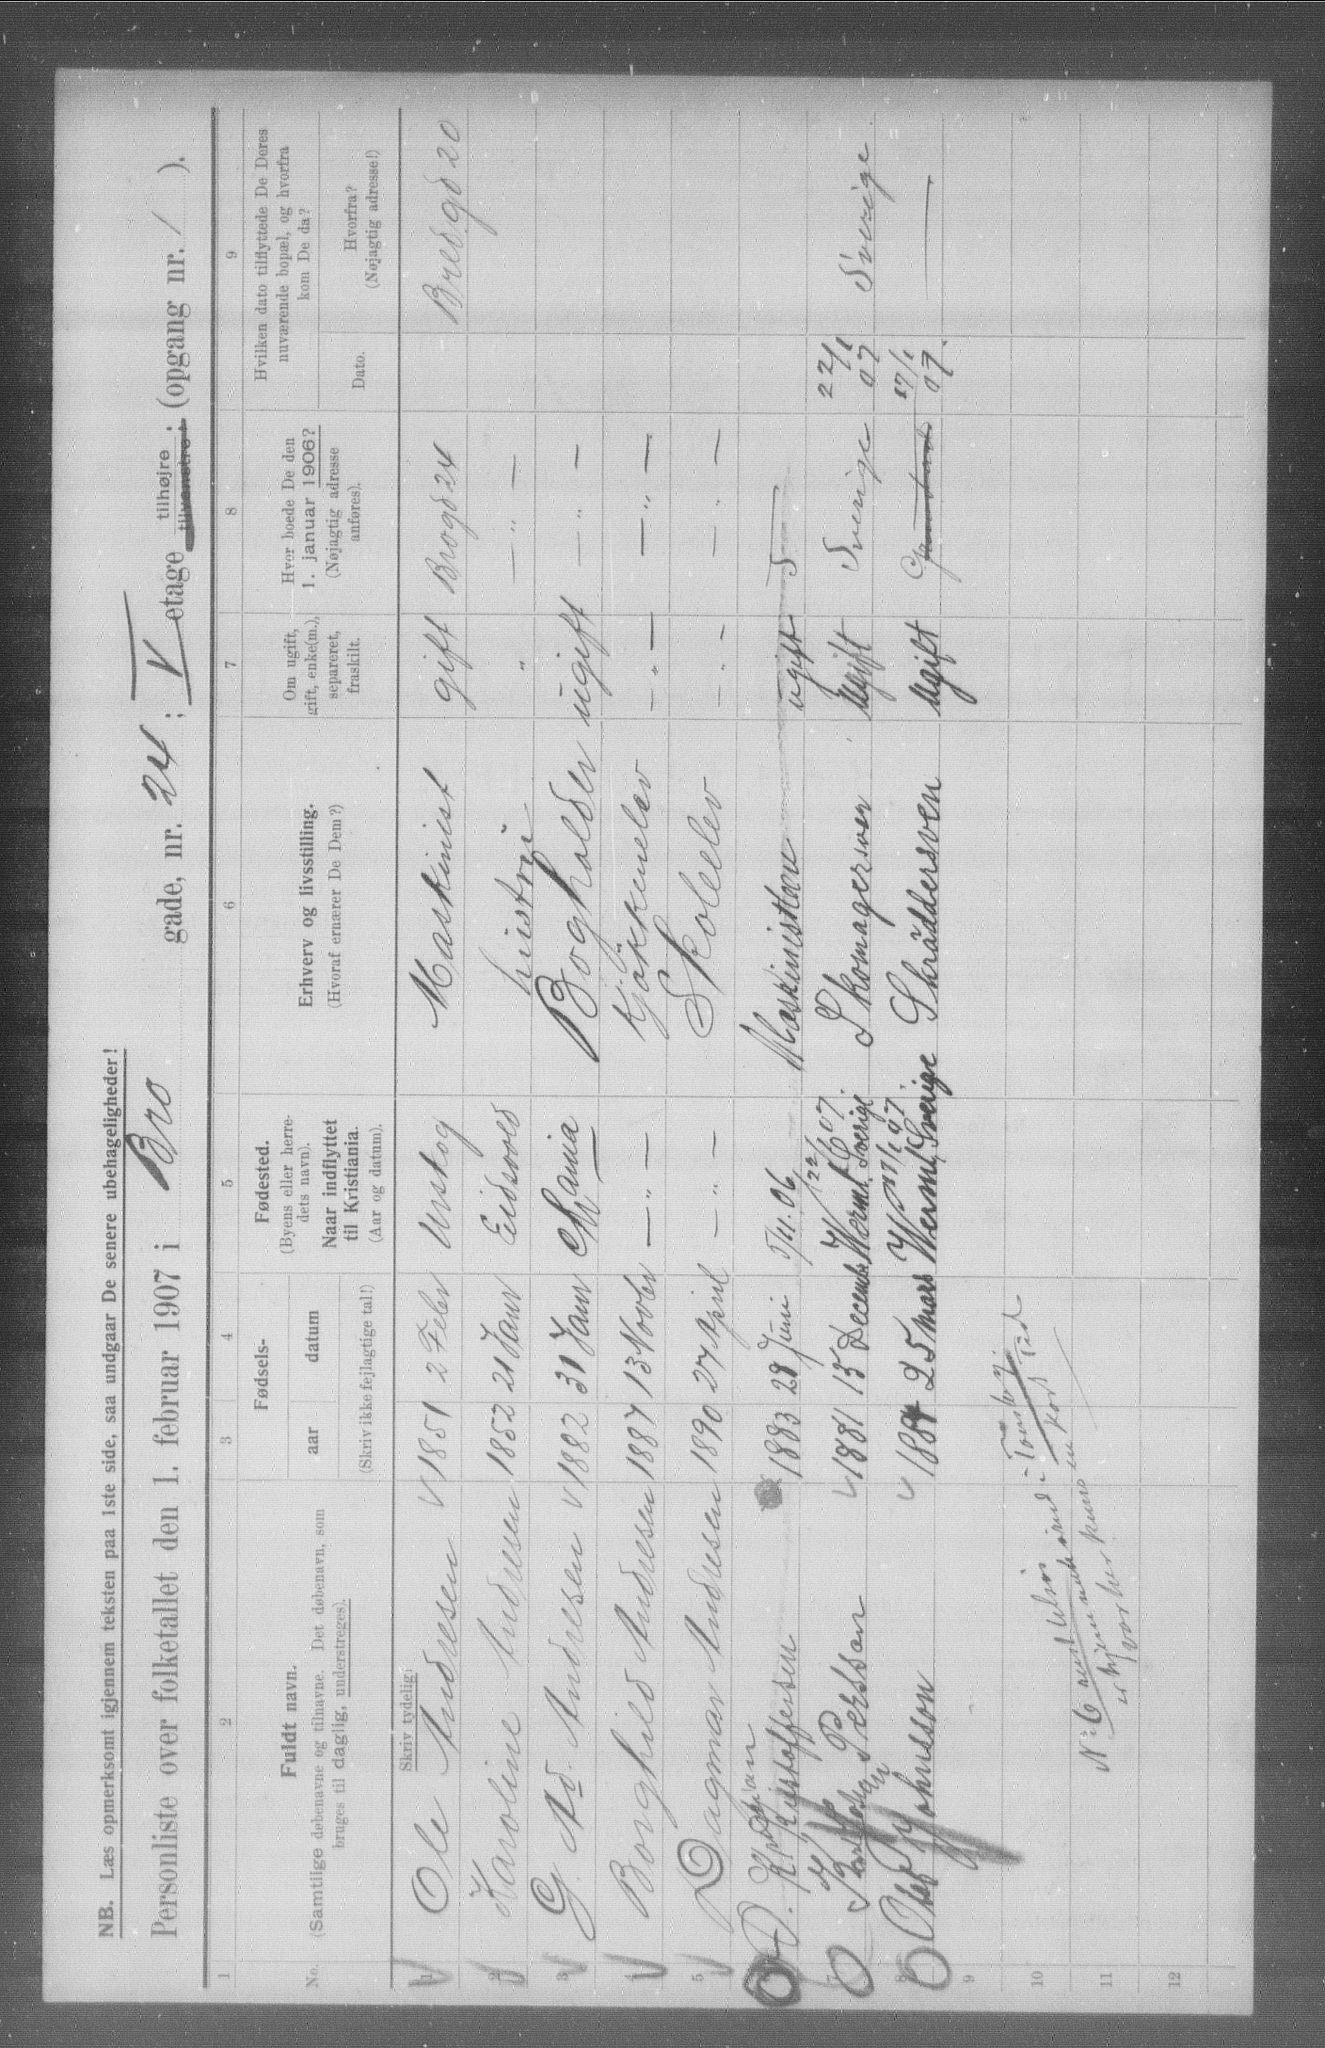 NB. Læs opmerksomt igjennem teksten paa 1ste side, saa undgaar De senere ubehageligheder!
Personliste over folketallet den 1. februar 1907 i Bro gade, nr. 24; V etage tilhøjre tilvenstre; (opgang nr. 1 ).
1 2 3 4 5 6 7 8 9
No.
Fuldt navn.
(Samtlige døbenavne og tilnavne. Det døbenavn, som
bruges til daglig, understreges).
Fødsels-
aar datum
(Skriv ikke fejlagtige tal!)
Fødested.
(Byens eller herre-
dets navn).
Naar indflyttet
til Kristiania.
(Aar og datum).
Erhverv og livsstilling.
(Hvoraf ernærer De Dem?)
Om ugift,
gift, enke(m.),
separeret,
fraskilt.
Hvor boede De den
1. januar 1906?
(Nøjagtig adresse
anføres).
Hvilken dato tilflyttede De Deres
nuværende bopæl, og hvorfra
kom De da?
Dato.
Hvorfra?
(Nøjagtig adresse!)
Skriv tydelig:
1 Ole Andresen 1851 2 Febr Urskog Maskinist gift Brogd 24 Bredgd 20
2 Karoline Andresen 1852 21 Janr Eidsvold hustru " — " —
3 G. Ad. Andresen 1882 31 Janr Chania Bogholder ugift — " —
4 Borghild Andresen 1887 13 Novbr — " — Kjøkkenelev — " — — " —
5 Dagmar Andresen 1890 27 April — " — Skoleelev — " — — " —
Kristoffersen 1883 28 Juni 5/11.06 ugift
7 Persson 1881 15 Decembr Verml. Sverige 22/1 07. Skomagersven Ugift Sverige 22/1 07 Sverige
8 Olof Johnsson 1884 25 Mars Verml, Sverige 07. Skräddersven Ugift 17/1 07. —
9
10
11
12